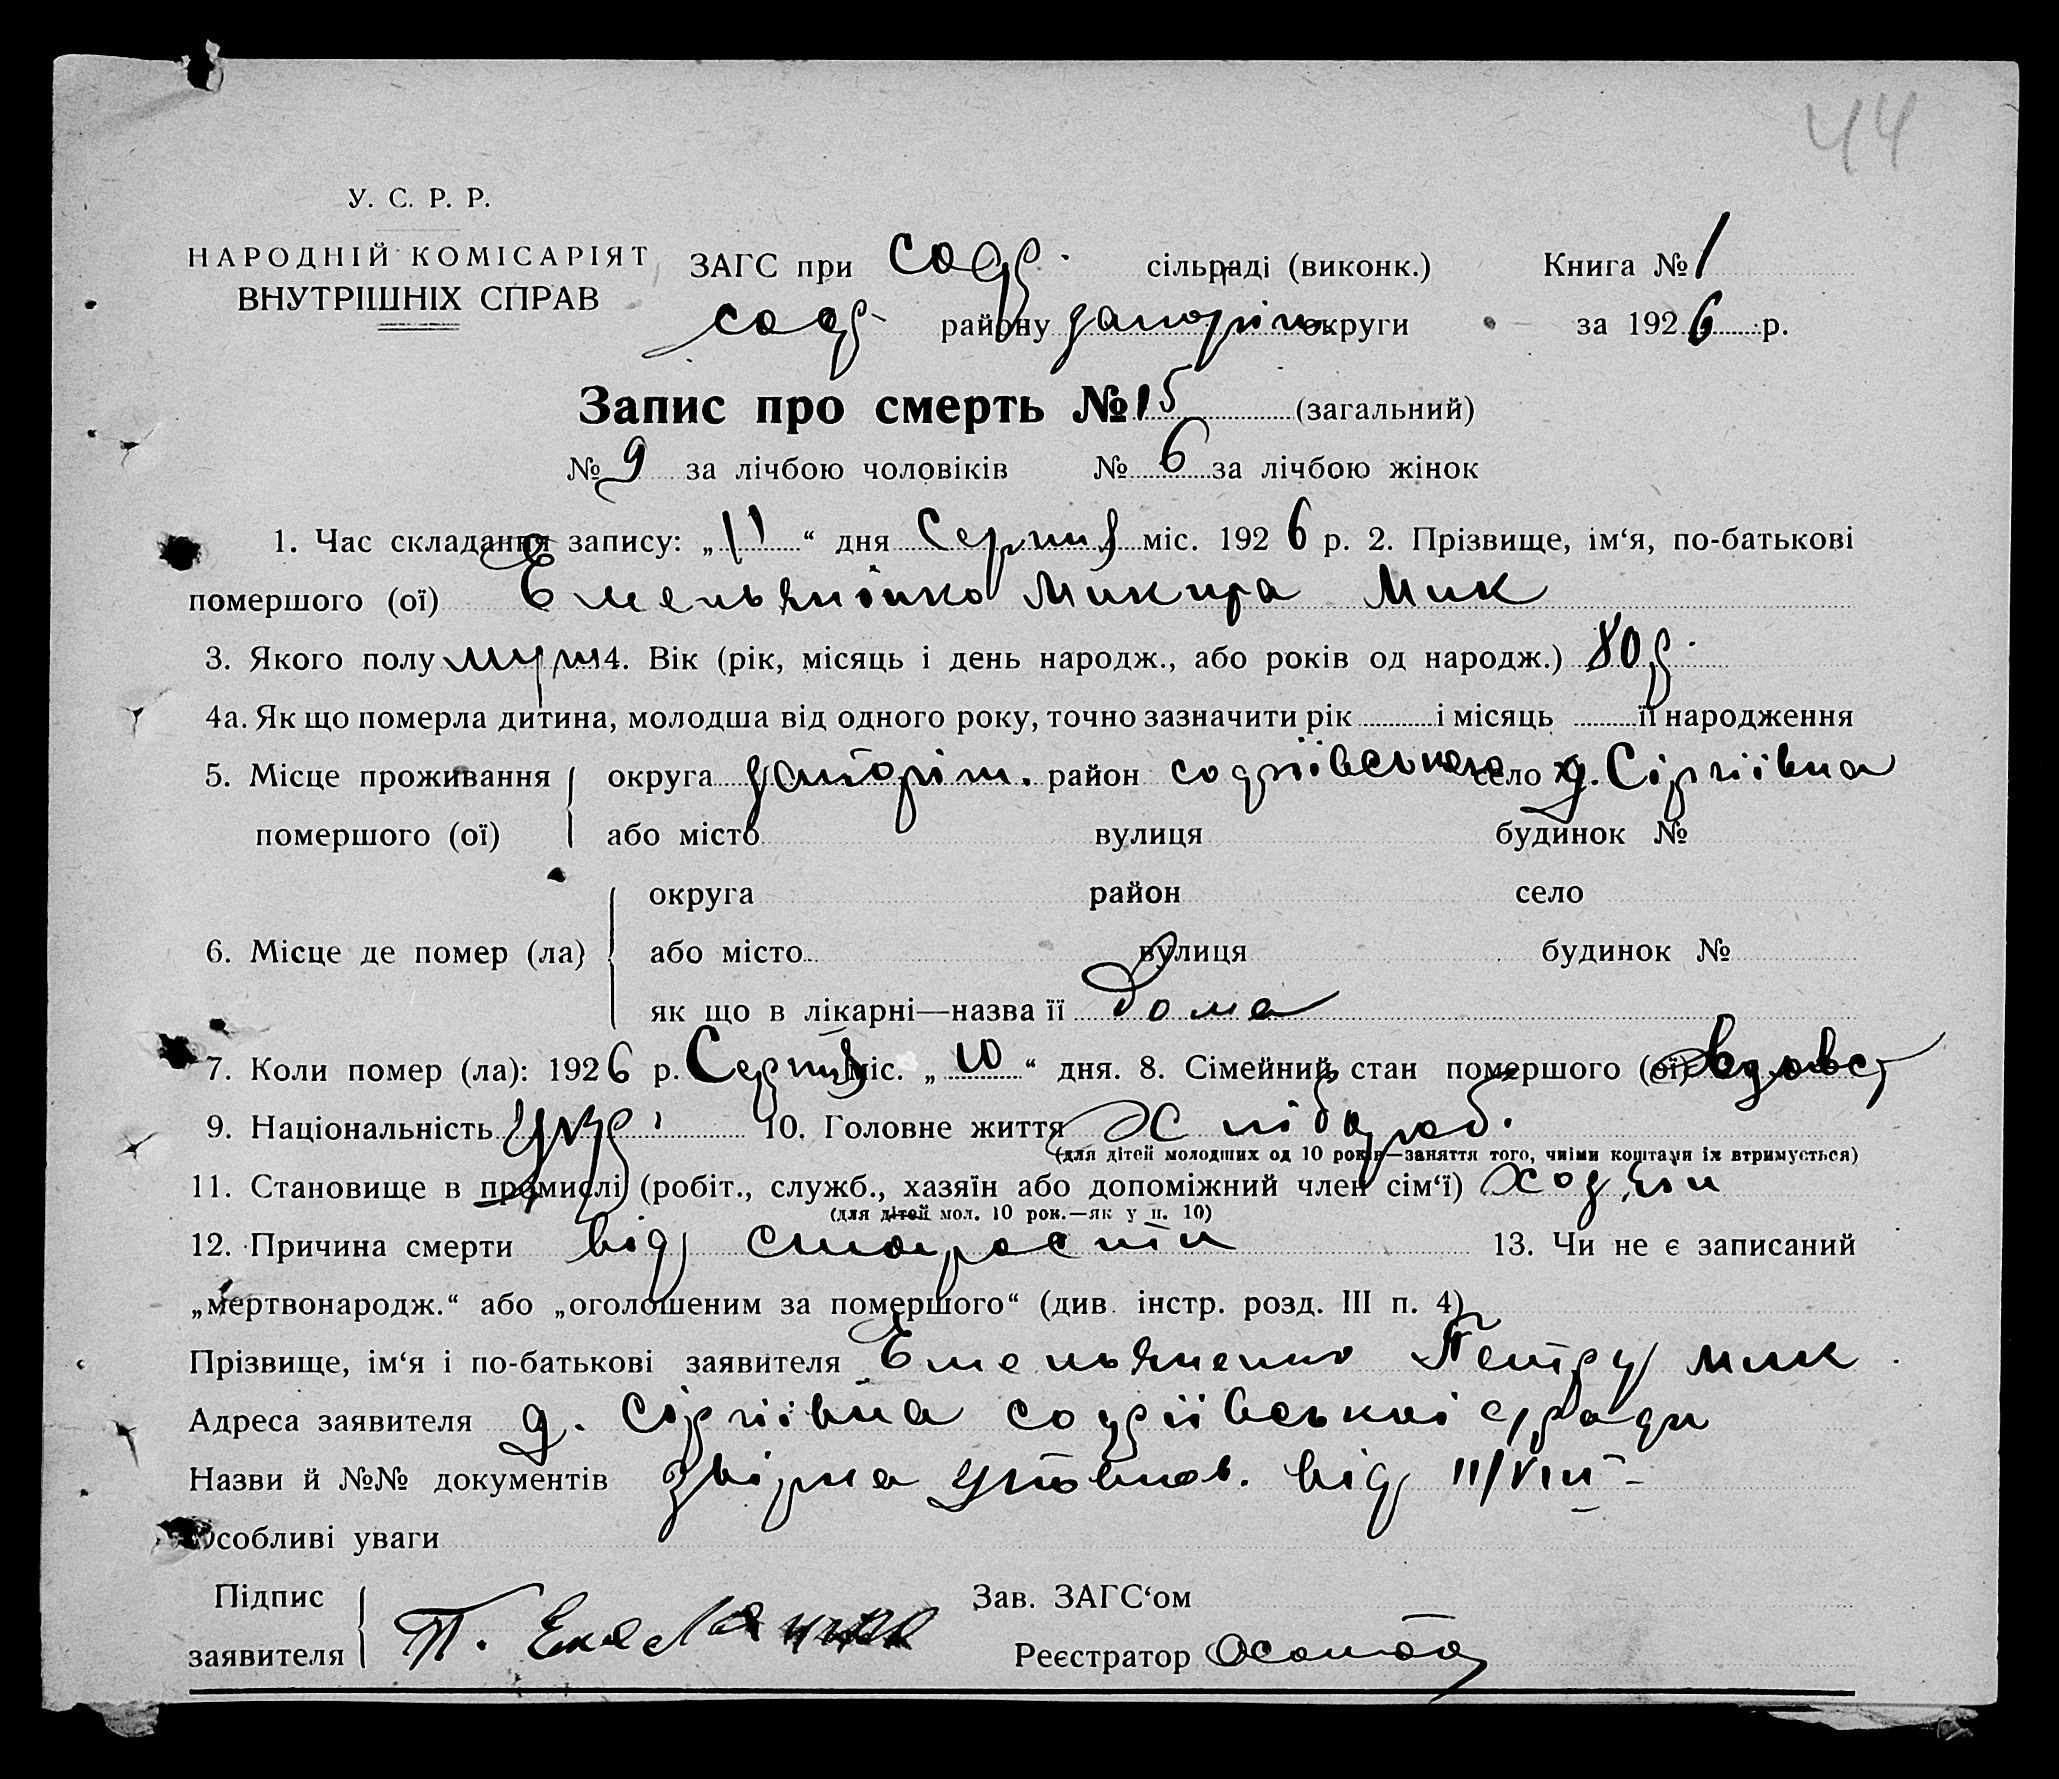 44
У. С. Р. Р.
НАРОДНІЙ КОМІСАРІЯТ
ВНУТРІШНІХ СПРАВ
ЗАГС при Соф. сільраді (виконк.) Книга № 1
соф району запоріж. округи за 1926 р.
Запис про смерть № 15 (загальний)
№ 9 за лічбою чоловіків № 6 за лічбою жінок
1. Час складання запису: „11“ дня Серпня міс. 1926 р. 2. Прізвище, ім‘я, по-батькові
помершого (ої) Емельяненко Микита Мик
3. Якого полу муж 4. Вік (рік, місяць і день народж., або років од народж.) 80 р.
4а. Як що померла дитина, молодша від одного року, точно зазначити рік і місяць її народження
5. Місце проживання округа запоріж. район софіївського село д. Сергіївна
помершого (ої) або місто вулиця будинок №
округа район село
6. Місце де помер (ла) або місто вулиця будинок №
як що в лікарні—назва її Дома
7. Коли помер (ла): 1926 р. Серпня міс. „10“ дня. 8. Сімейний стан помершого (ої) вдовец
9. Національність Укр. 10. Головне життя Хлібороб.
(для дітей молодших од 10 років—заняття того, чиїми коштами їх втримується)
11. Становище в промислі (робіт., служб., хазяїн або допоміжний член сім‘ї) хозяїн
(для дітей мол. 10 рок.—як у п. 10)
12. Причина смерти від старости 13. Чи не є записаний
„мертвонародж.“ або „оголошеним за помершого“ (див. інстр. розд. III п. 4)
Прізвище, ім‘я і по-батькові заявителя Емельяненко Петру Мик
Адреса заявителя д. Сергіївна софіївської с/ради
Назви й №№ документів від 11/VIII
Особливі уваги
Підпис Зав. ЗАГС‘ом
заявителя П. Реєстратор